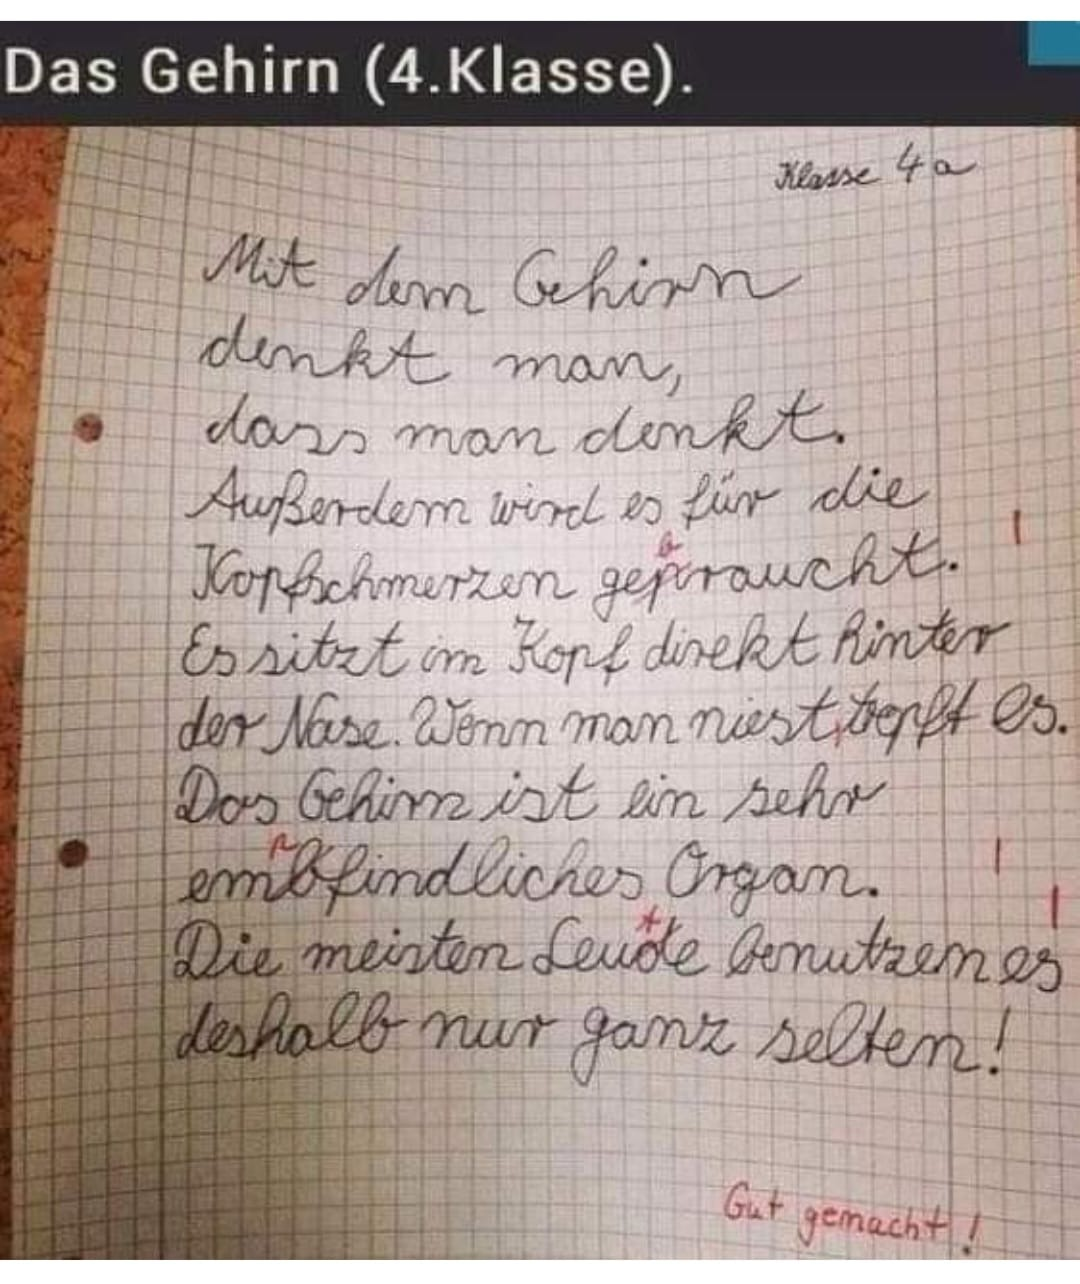 Das Gehirn (4.Klasse).
Klasse 4a
Mit dem Gehirn
denkt man,
dass man denkt.
Außerdem wird es für die
b
Kopfschmerzen gepraucht.
Es sitzt im Kopf direkt hinter
der Nase. Wenn man niest, tropft es.
Das Gehirn ist ein sehr
p
embfindliches Organ.
t
Die meisten Leude benutzen es
deshalb nur ganz selten!
Gut gemacht!